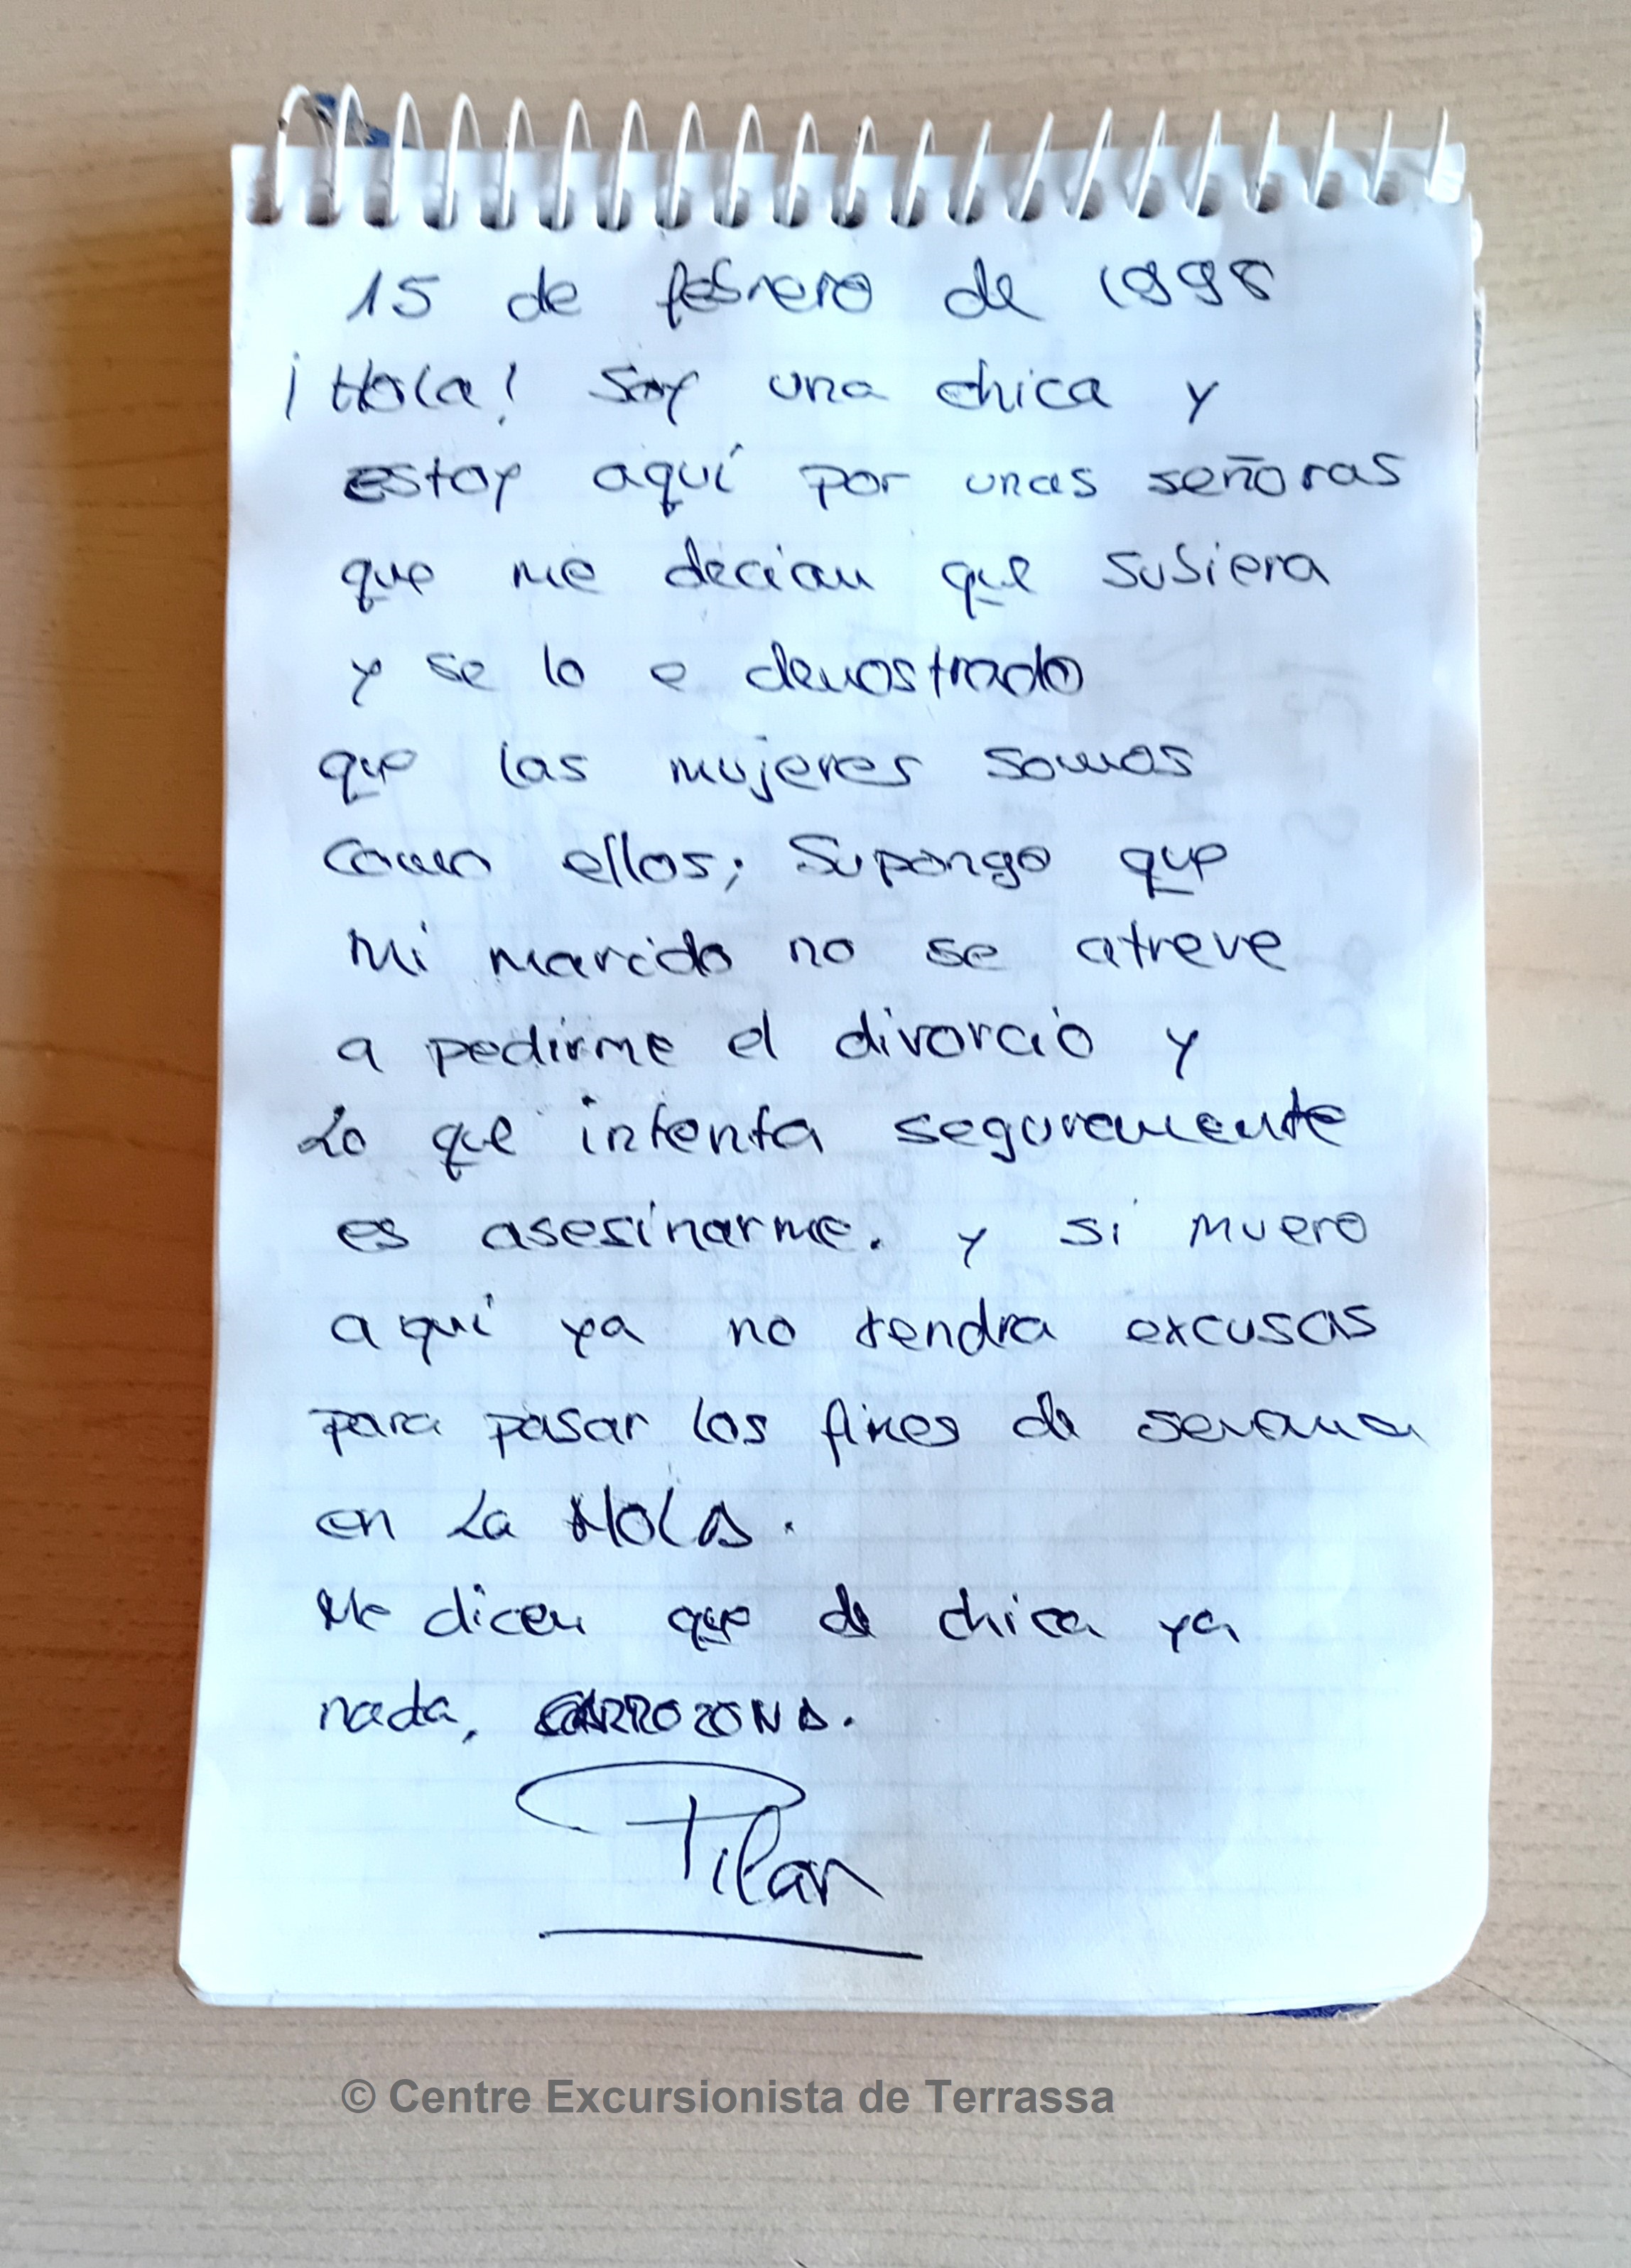 15 de febrero de 1998
¡Hola! Soy una chica y
estoy aquí por unas señoras
que me decian que subiera
y se lo e demostrado
que las mujeres somos
como ellos; Supongo que
mi marido no se atreve
a pedirme el divorcio y
Lo que intenta seguramente
es asesinarme. y si muero
aquí ya no tendra excusas
para pasar los fines de semana
en La MOLA.
Me dicen que de chica ya
nada, CARROZONA.
Pilar
© Centre Excursionista de Terrassa